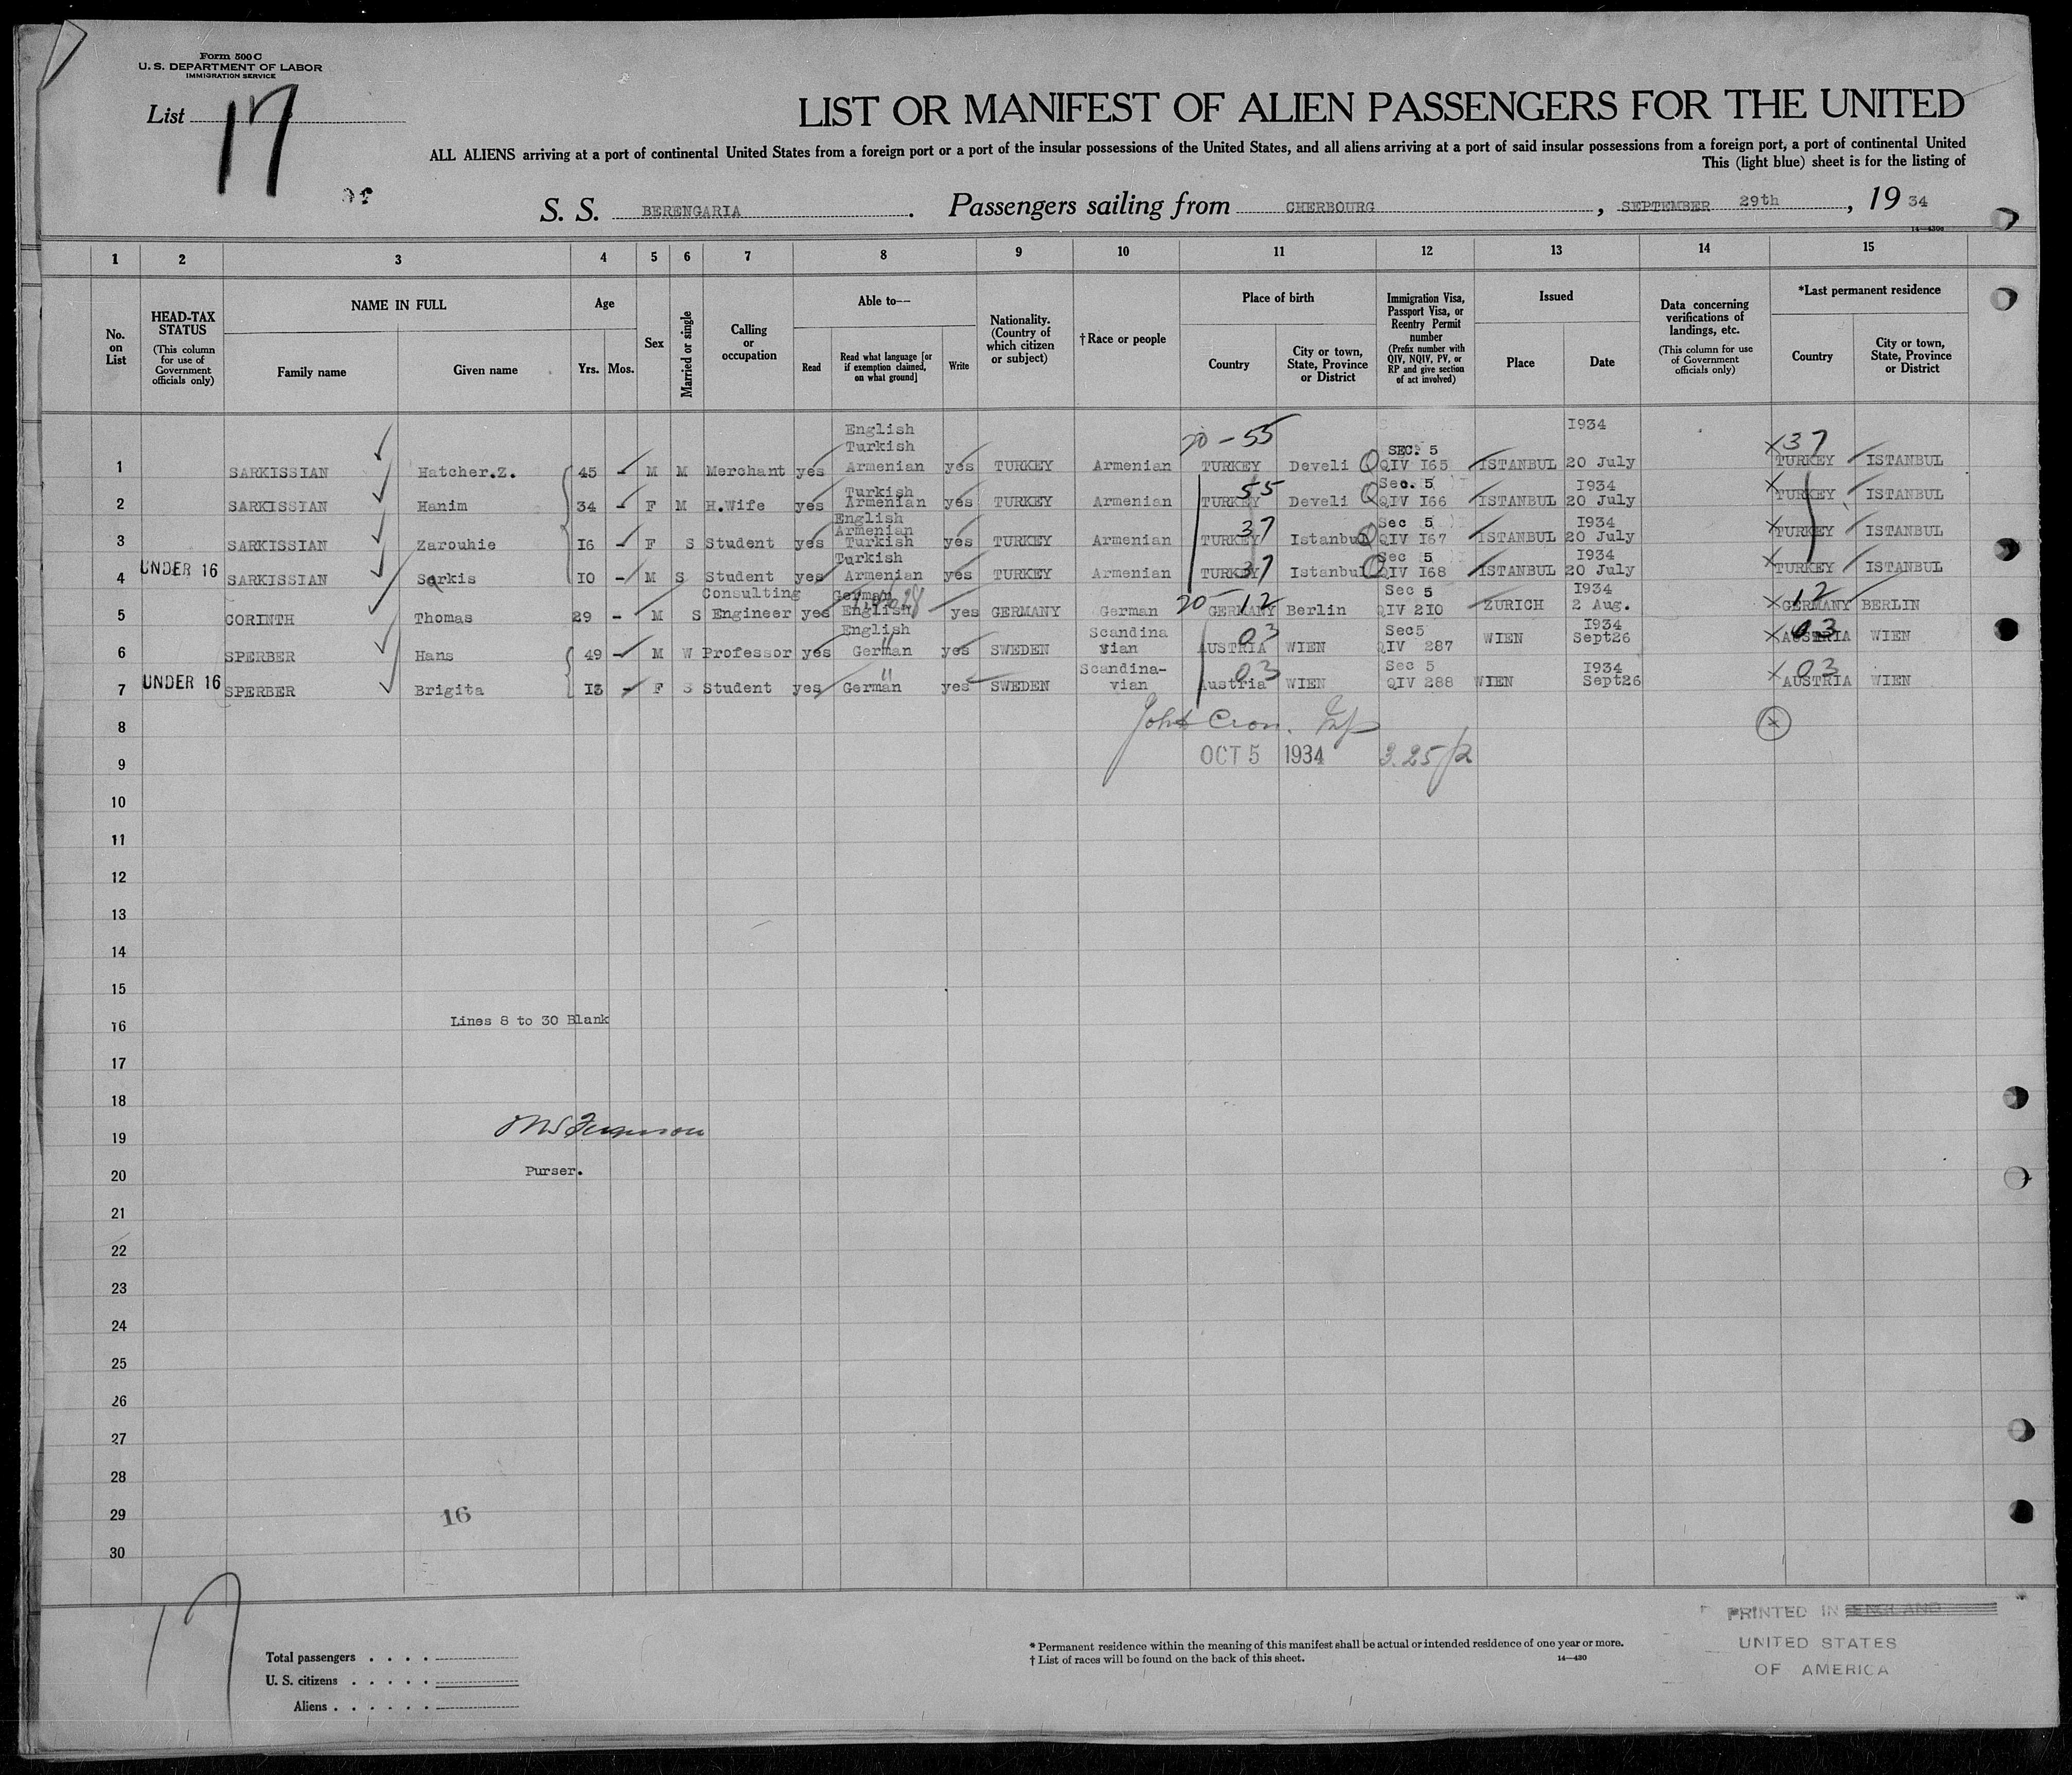 Form 500 C
U. S. DEPARTMENT OF LABOR
IMMIGRATION SERVICE
List 17
LIST OR MANIFEST OF ALIEN PASSENGERS FOR THE UNITED
ALL ALIENS arriving at a port of continental United States from a foreign port or a port of the insular possessions of the United States, and all aliens arriving at a port of said insular possessions from a foreign port, a port of continental United
This (light blue) sheet is for the listing of
S. S. BERENGARIA. Passengers sailing from CHERBOURG, SEPTEMBER 29th, 19 34
1 2 3 4 5 6 7 8 9 10 11 12 13 14 15
No. on List
HEAD-TAX STATUS (This column for use of Government officials only)
NAME IN FULL
Family name Given name
Age
Yrs. Mos.
Sex
Married or single
Calling or occupation
Able to—
Read
Read what language [or if exemption claimed, on what ground]
Write
Nationality. (Country of which citizen or subject)
† Race or people
Place of birth
Country
City or town, State, Province or District
Immigration Visa, Passport Visa, or Reentry Permit number (Prefix number with QIV, NQIV, PV, or RP and give section of act involved)
Issued
Place Date
Data concerning verifications of landings, etc. (This column for use of Government officials only)
*Last permanent residence
Country
City or town, State, Province or District
1 SARKISSIAN Hatcher.Z. 45 - M M Merchant yes English Turkish Armenian yes TURKEY Armenian 20-55 TURKEY Develi SEC. 5 QIV I65 ISTANBUL 20 July I934 37 TURKEY ISTANBUL
2 SARKISSIAN Hanim 34 - F M H.Wife yes Turkish Armenian yes TURKEY Armenian 55 TURKEY Develi Sec. 5 QIV I66 ISTANBUL 20 July I934 TURKEY ISTANBUL
3 SARKISSIAN Zarouhie I6 - F S Student yes English Armenian Turkish yes TURKEY Armenian 37 TURKEY Istanbul Sec 5 QIV I67 ISTANBUL 20 July I934 TURKEY ISTANBUL
4 UNDER 16 SARKISSIAN Sarkis IO - M S Student yes Turkish Armenian yes TURKEY Armenian 37 TURKEY Istanbul Sec 5 QIV I68 ISTANBUL 20 July I934 TURKEY ISTANBUL
5 CORINTH Thomas 29 - M S Consulting Engineer yes German English yes GERMANY German 20-12 GERMANY Berlin Sec 5 QIV 2IO ZURICH 2 Aug. I934 12 GERMANY BERLIN
6 SPERBER Hans 49 - M W Professor yes English German yes SWEDEN Scandina vian 03 AUSTRIA WIEN Sec5 QIV 287 WIEN Sept26 I934 03 AUSTRIA WIEN
7 UNDER 16 SPERBER Brigita I3 - F S Student yes " German yes SWEDEN Scandina- vian 03 Austria WIEN Sec 5 QIV 288 WIEN Sept26 I934 03 AUSTRIA WIEN
8
9 OCT 5 1934
10
11
12
13
14
15
16 Lines 8 to 30 Blank
17
18
19
20 Purser.
21
22
23
24
25
26
27
28
29 16
30
17
Total passengers
U. S. citizens
Aliens
* Permanent residence within the meaning of this manifest shall be actual or intended residence of one year or more.
† List of races will be found on the back of this sheet.
14—430
PRINTED IN ENGLAND
UNITED STATES
OF AMERICA